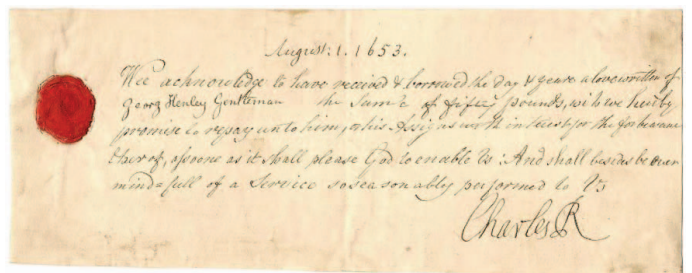 August: 1. 1653.
Wee acknowledge to have received & borrowed the day & yeare abovewritten of
Georg Henley Gentleman the Summe of fifty pounds, wch we hereby
promise to repay unto him, or his Assignes with interest for the forbearance
thereof, assoone as it shall please God to enable Us: And shall besides be ever
mindefull of a Service so seasonably performed to Us
Charles R